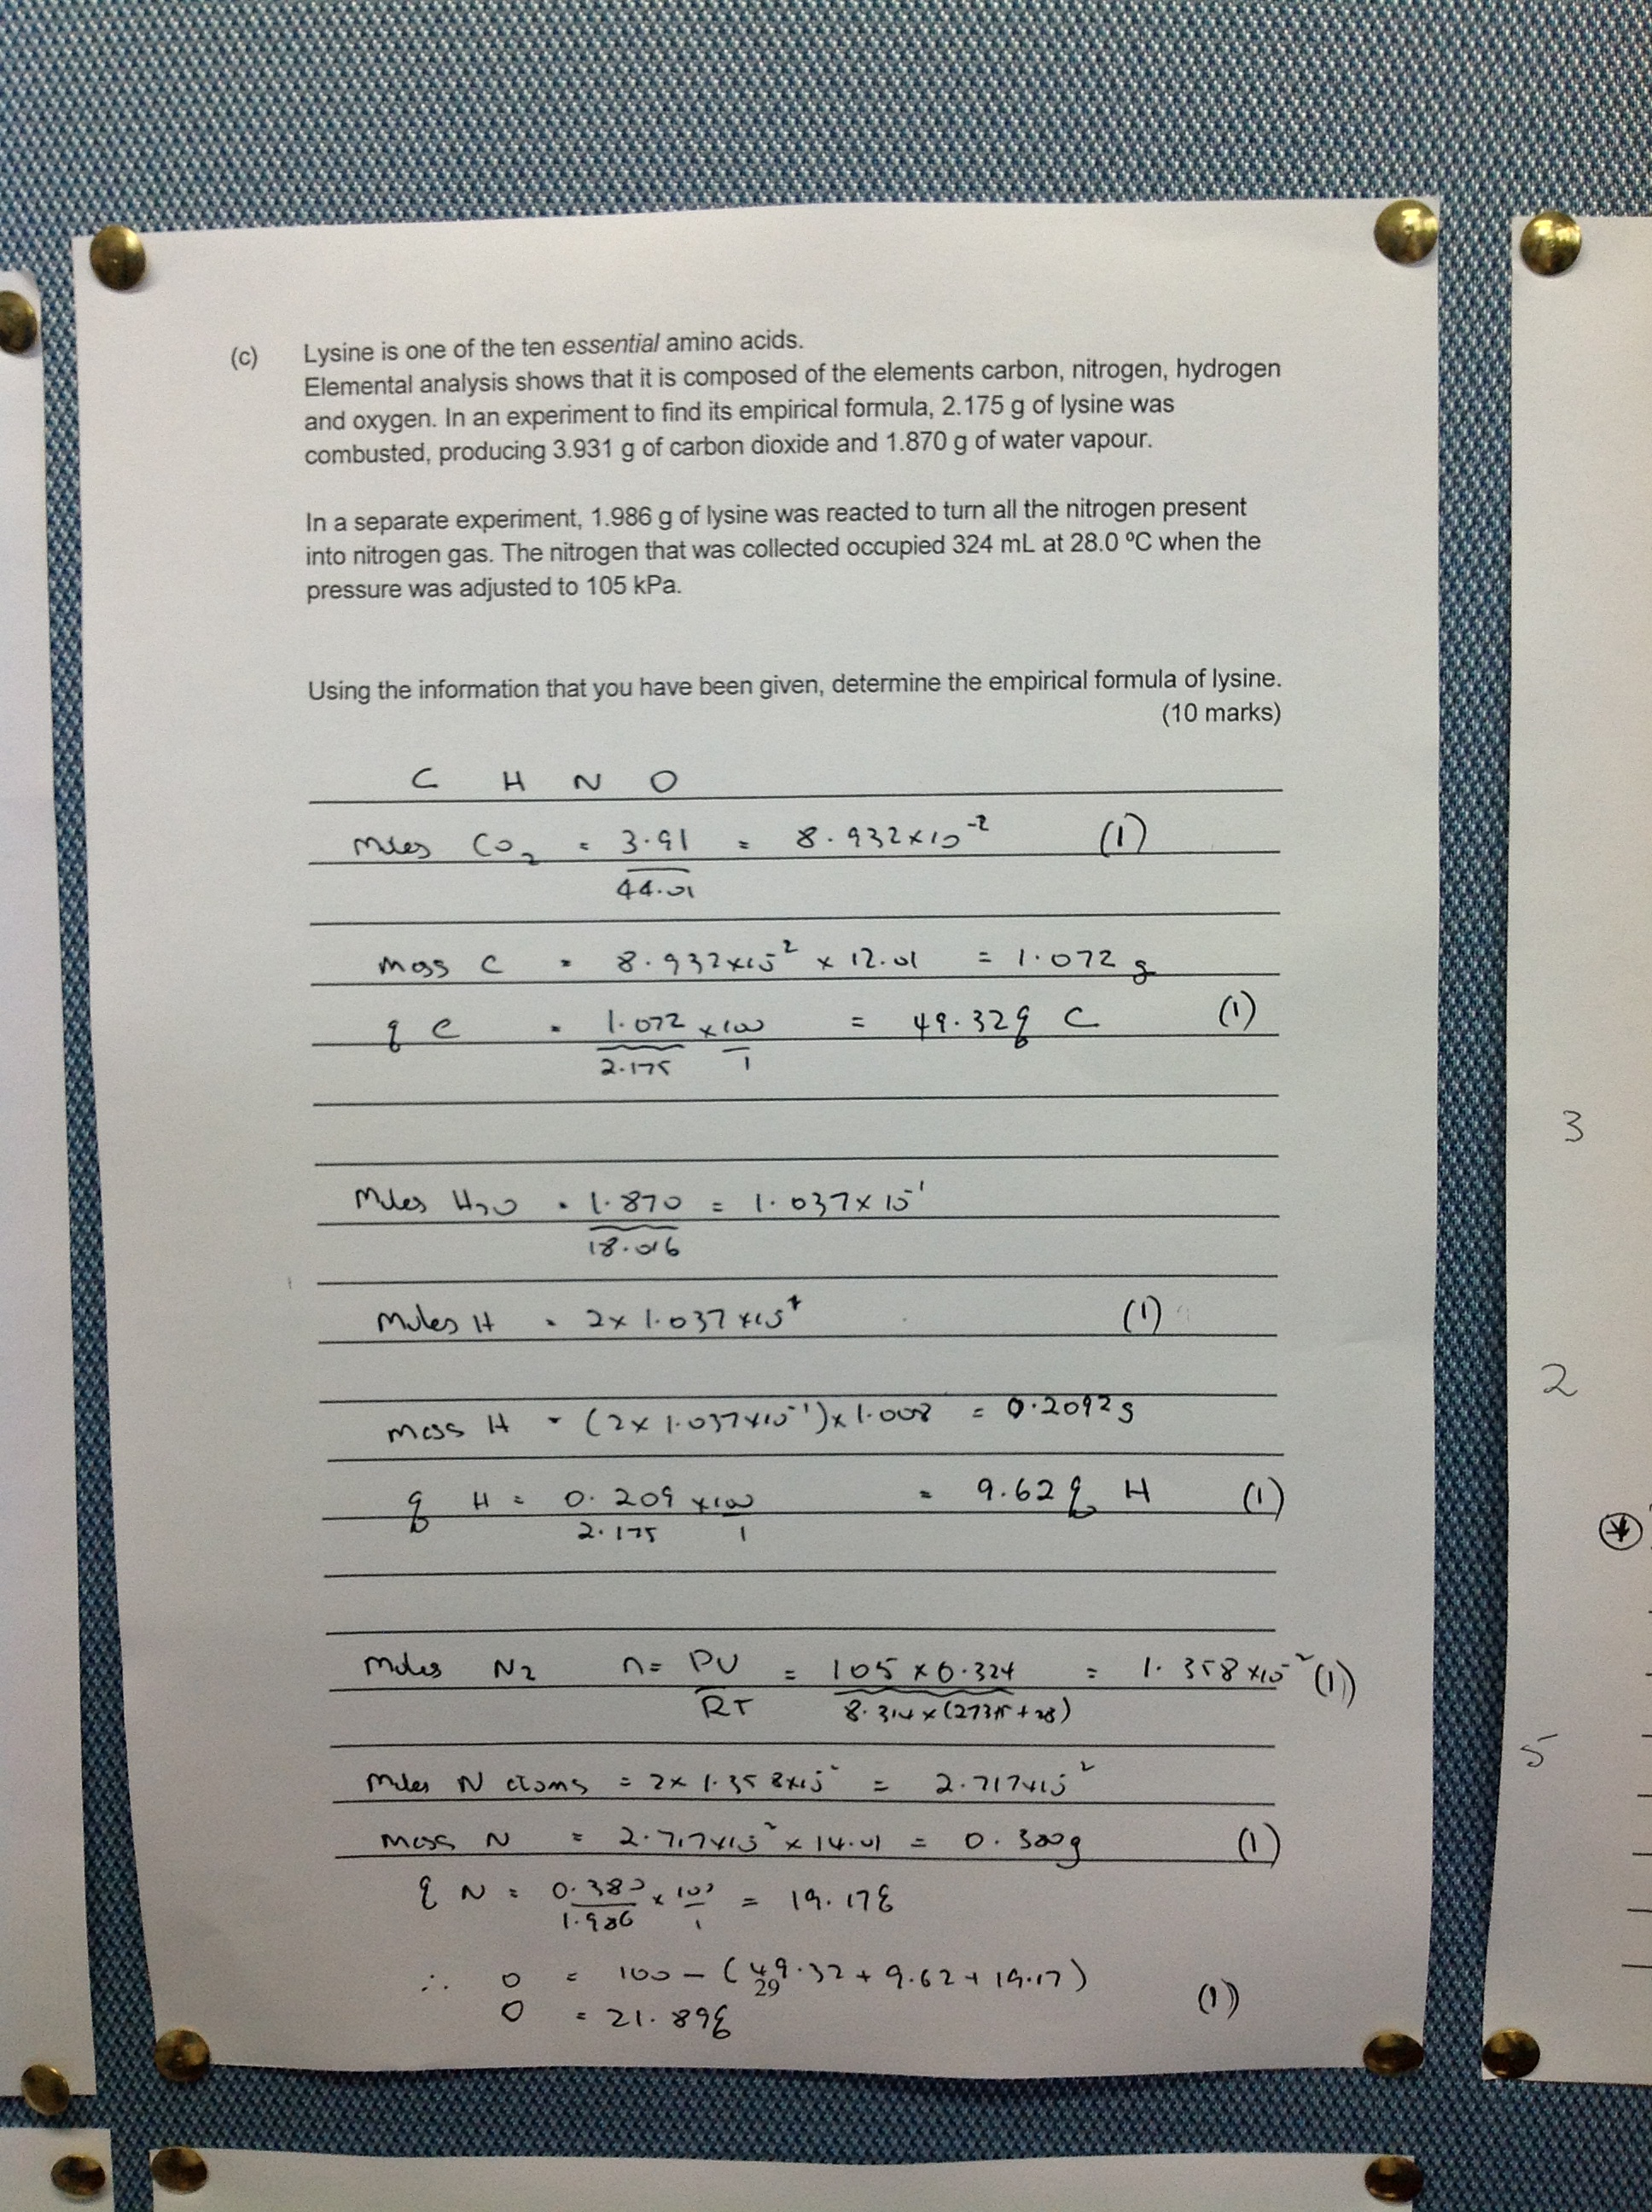 (c) Lysine is one of the ten essential amino acids.
Elemental analysis shows that it is composed of the elements carbon, nitrogen, hydrogen
and oxygen. In an experiment to find its empirical formula, 2.175 g of lysine was
combusted, producing 3.931 g of carbon dioxide and 1.870 g of water vapour.
In a separate experiment, 1.986 g of lysine was reacted to turn all the nitrogen present
into nitrogen gas. The nitrogen that was collected occupied 324 mL at 28.0 ºC when the
pressure was adjusted to 105 kPa.
Using the information that you have been given, determine the empirical formula of lysine.
(10 marks)
C H N O
moles CO₂ = 3.91 = 8.932×10⁻² (1)
44.01
mass C = 8.932×10⁻² × 12.01 = 1.072 g
% C = 1.072 × 100 = 49.32% C (1)
2.175 1
Moles H₂O = 1.870 = 1.037×10⁻¹
18.016
moles H = 2×1.037×10⁻¹ (1)
mass H = (2×1.037×10⁻¹)×1.008 = 0.2092g
% H = 0.209 ×100 = 9.62% H (1)
2.175 1
moles N₂ n= PV = 105 × 0.324 = 1.358×10⁻² (1)
RT 8.314×(273.15+28)
moles N atoms = 2×1.358×10⁻² = 2.717×10⁻²
mass N = 2.717×10⁻² × 14.01 = 0.380g (1)
% N = 0.380 × 100 = 19.17%
1.986 1
∴ O = 100 – (49.32+9.62+19.17)
29
O = 21.89% (1)
3
2
5